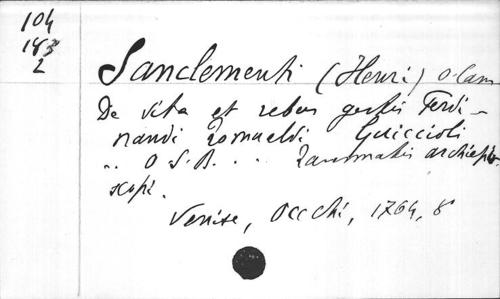 104
183
2
Sanclementi (Henri) O. Cam
De vita et rebus gestis Ferdi-
nandi Romualdi Guiccioli
.. O. S. B. .. Ravennatis archiepi-
scopi.
Venise, Occhi, 1764, 8